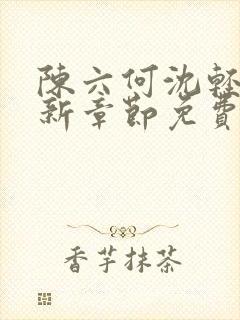 陳六何沈輕
新章節免費
香芋抹茶